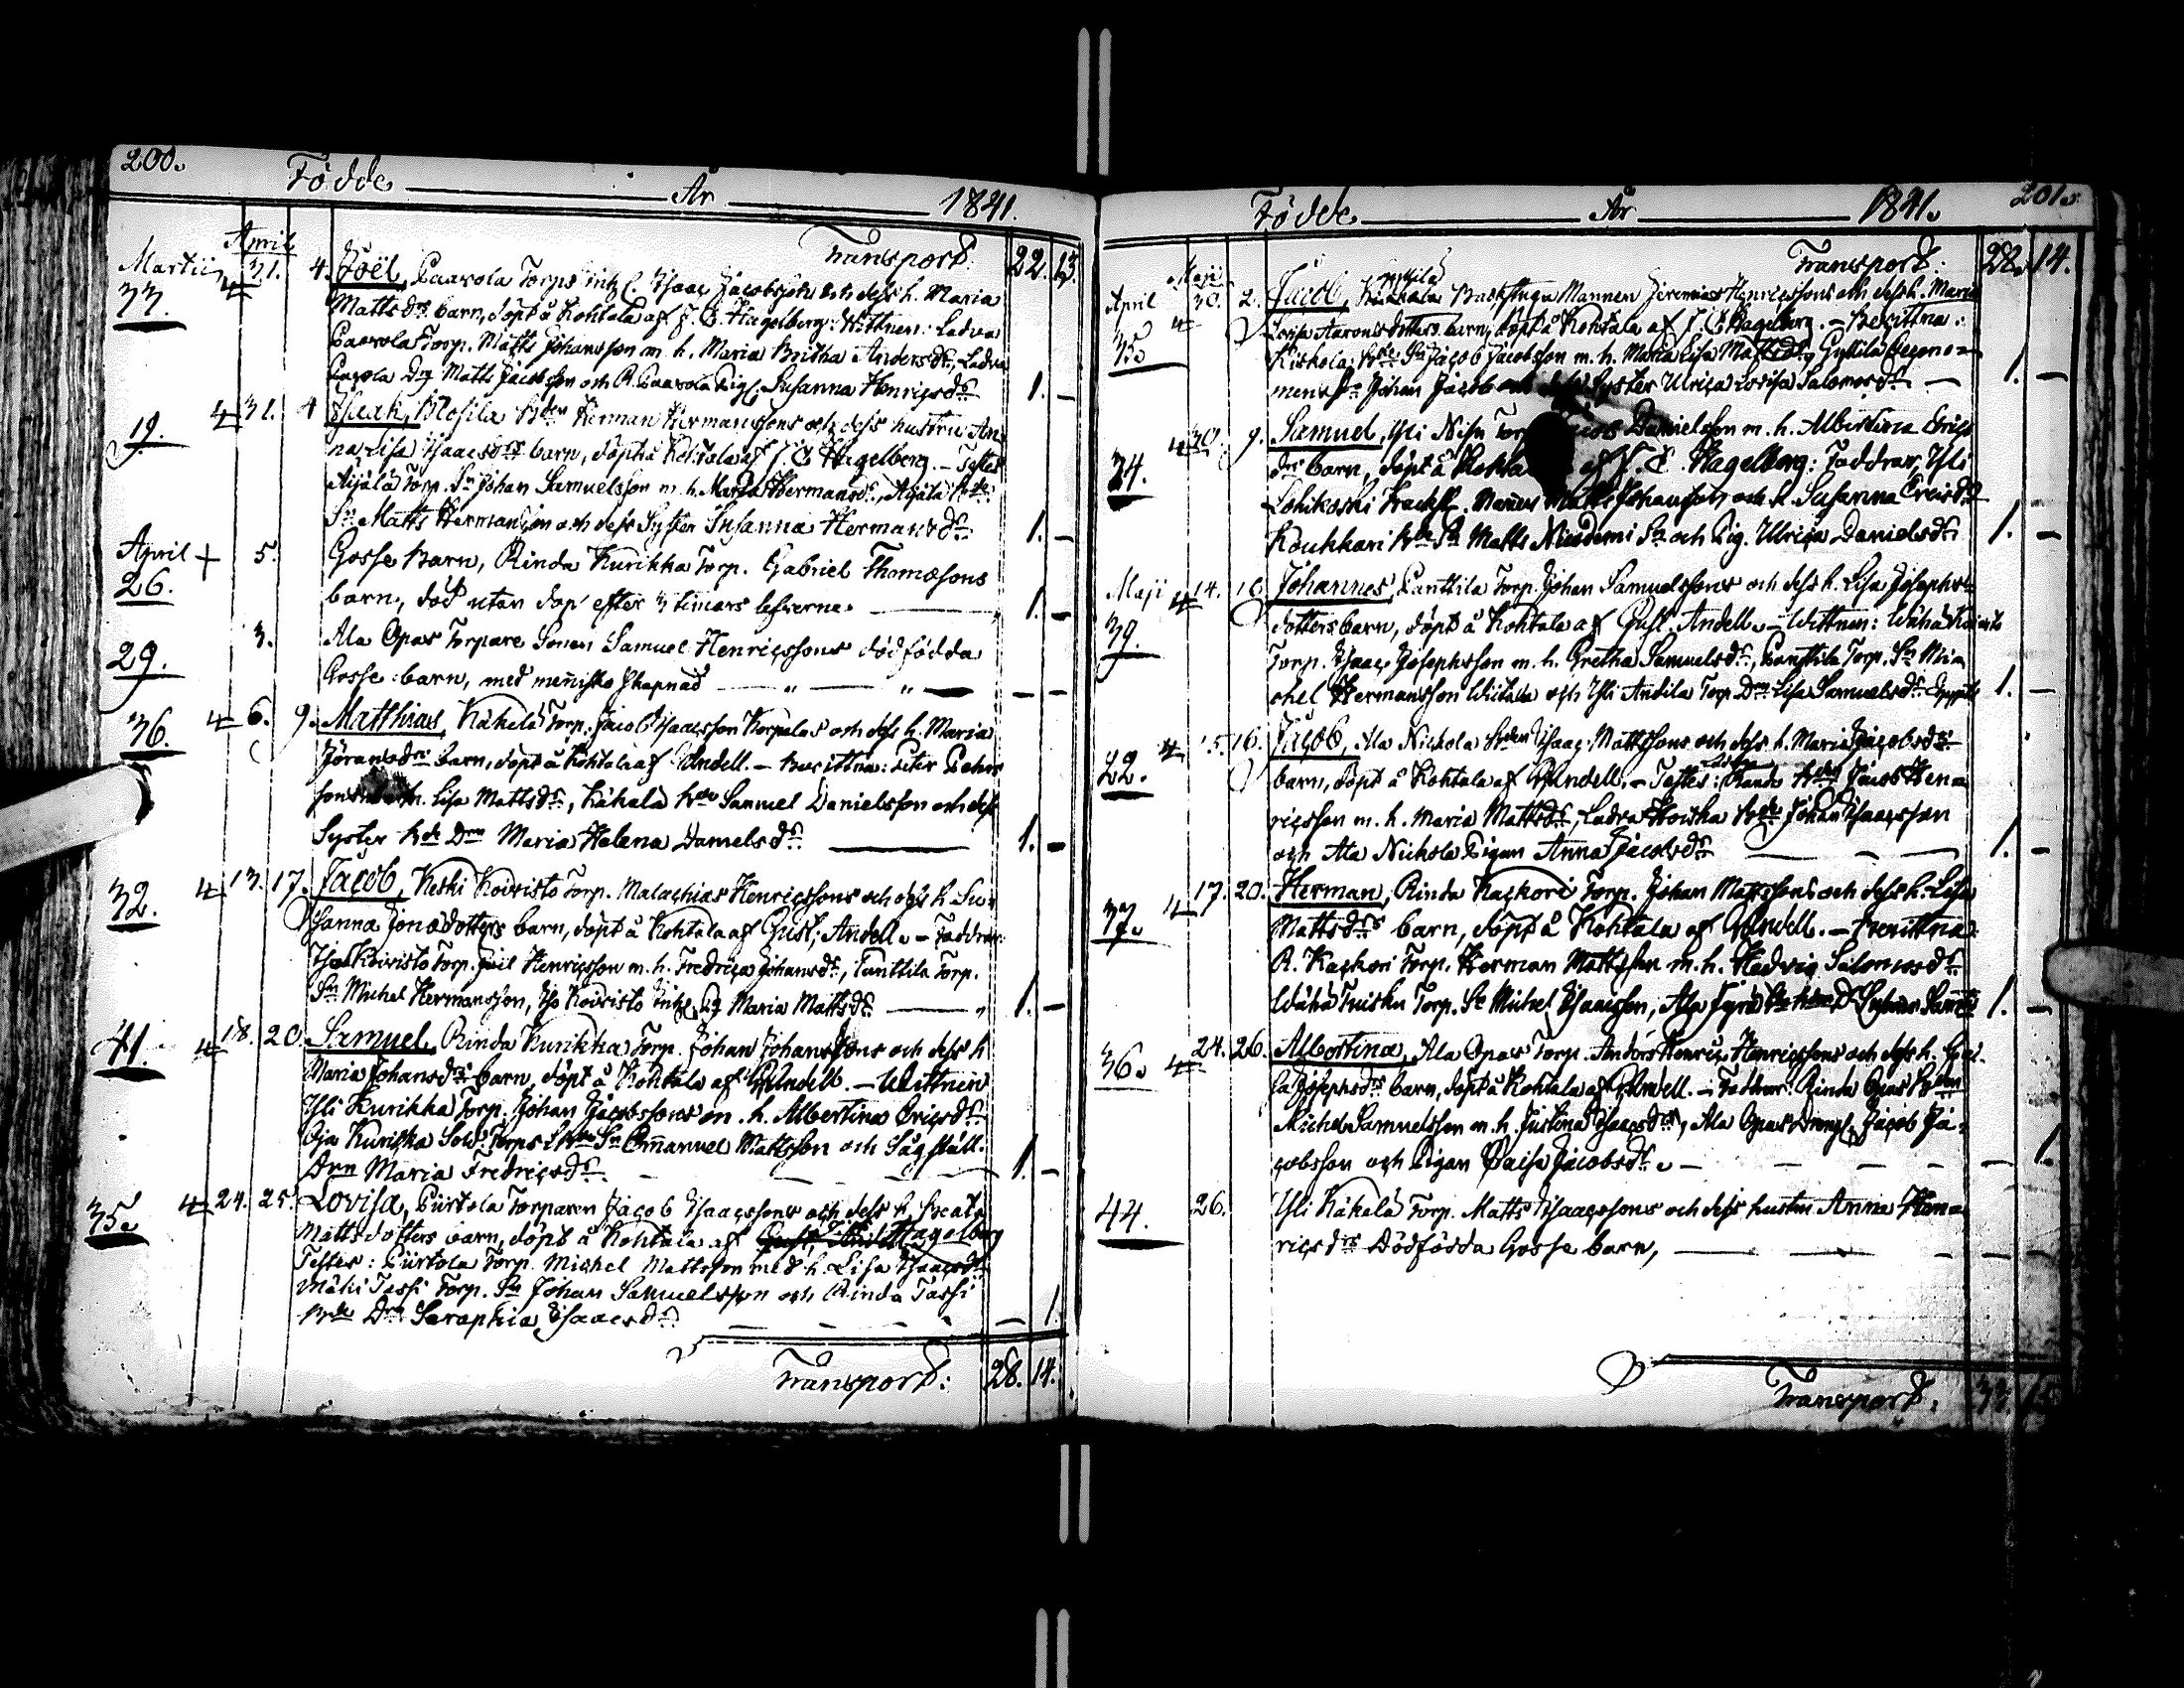 200.
Födde År 1841.
Martii April Transport: 22. 13.
33. 31. 4. Joël, Paavola Torps inh. Isaac Jacobsons och dess h. Maria
Matts drs barn, döpt å Kohtala af J. E. Hagelberg: Wittnen: Ladva
Paavola Torp. Matts Johansson m. h. Maria Britha Andersdr, Ladva
Paavola Drg Matts Jacobsson och R. Paavola Pig. Susanna Henricsdr 1. –
19. 31. 4 Isaak, Klosila Bden Herman Hermanssons och dess hustru An-
na Lisa Isaacsdrs barn, döpt å Kohtala af J. E. Hagelberg. – Testes
Äijälä Torp. Sn Johan Samuelsson m. h. Maria Hermansdr, Äijälä
Sn Matts Hermansson och dess Syster Susanna Hermansdr 1. –
April + 5. Gosse Barn, Rinda Kurikka Torp. Gabriel Thomæsons
26. barn, död utan dop efter 3 timars lefverne. 1. –
29. 3. Ala Opas Torpare Sonen Samuel Henricssons dödfödda
Gosse barn, med menisko skapnad – " – " – – –
36. 6. 9. Matthias, Käkelä Torp. Jacob Isaacsson Korpelas och dess h. Maria
Jöransdrs barn, döpt å Kohtala af GAndell. – Bevittna: Peter Pehrs
sons m. Lisa Mattsdr, Käkälä Samuel Danielsson och dess
Syster Drn Maria Helena Danielsdr. 1. –
32. 13. 17. Jacob, Keski Koivisto Torp. Malachias Henricssons och dess h. Su-
sanna Jonædotters barn, döpt å Kohtala af Gust. Andell. – Faddrar:
Iso Koivisto Torp. Joil Henricsson m. h. Fredrica Johansdr, Panttila Torp.
Sn Michel Hermansson, Iso Koivisto Inh. Pig Maria Mattsdr 1. –
41. 18. 20. Samuel, Rinda Kurikka Torp. Johan Johanssons och dess h
Maria Johansdrs barn, döpt å Kohtala af GAndell. – Wittnen
Yli Kurikka Torp. Johan Jacobssons m. h. Albertina Ericsdr
Oja Kurikka Sold. Torps Sn Emanuel Mattsson och
Drn Maria Fredricsdr. 1. –
35. 24. 25. Lovisa, Piirtola Torparen Jacob Isaacssons och dess h. Beata
Mattsdotters barn, döpt å Kohtala af Hagelberg
Testes: Piirtola Torp. Michel Mattsson med h. Lisa Isaacsdr
Mäki Tassi Torp. Sn Johan Samuelsson och Rinda Tassi
Drn Seraphia Isaacsdr – 1.
Transport: 28. 14.
Födde År 1841. 201.
April Maji Transport: 28. 14.
35. 30. 2. Jacob, Gyltilä Backstugu Mannen Jeremias Henricssons och dess h. Maria
Lovisa Aarons dotters barn, döpt å Kohtala af J. E. Hagelberg. – Bevittna:
Kiskola Sn Jacob Jacobsson m. h. Maria Lisa Mattsdr, Gyltilä
Johan Jacobs Syster Ulrica Lovisa Salomonsdr 1. –
34. 30. 9. Samuel, Yli Nisu Torp. Danielsson m. h. Albertina Erics
drs barn, döpt å Kohtala af J. E. Hagelberg: Faddrar, Yli
Lohikoski Backst. Mannen Matts Johansson och h. Susanna Ericsdr
Koukkari Sn Matts Nicodemi Sn och Pig. Ulrica Danielsdr 1. –
Maji 14. 16. Johannes, Panttila Torp. Johan Samuelssons och dess h. Lisa Josephs-
39. dotters barn, döpt å Kohtala af Gust. Andell. – Wittnen: Wähä Koivisto
Torp. Isaac Josephsson m. h. Gretha Samuelsdr, Panttila Torp. Sn Mi-
chel Hermansson Wiitala och Yli Anttila Torp. Drn Lisa Samuelsdr 1. –
22. 15. 16. Jacob, Ala Nickola Bden Isaac Mattssons och dess h. Maria Jacobsdrs
barn, döpt å Kohtala af GAndell. – Testes: Jacob Hen-
ricsson m. h. Maria Mattsdr, Ladva Johan Isaacsson
och Ala Nickola Pigan Anna Jacobsdr 1. –
37. 17. 20. Herman, Rinda Kackori Torp. Johan Mattssons och dess h. Lisa
Mattsdrs barn, döpt å Kohtala af GAndell. – Bevittna
R. Kackori Torp. Herman Mattsson m. h. Hedvig Salomonsdr
Wähä Tuisku Torp. Sn Michel Isaacsson, Ala Jyrä 1. –
36. 24. 26. Albertina, Ala Opas Torp. Anders Henric Henricssons och dess h. Lovi-
sa Josephsdrs barn, döpt å Kohtala af GAndell. – Faddrar: Rinda Opas Bden
Michel Samuelsson m. h. Justina Isaacsdr, Ala Opas Drengs. Jacob Ja-
cobsson och Pigan Caisa Jacobsdr. – 1.
44. 26. Yli Käkelä Torp. Matts Isaacssons och dess hustru Anna Hen-
ricsdrs Dödfödda Gosse barn, – –
Transport: